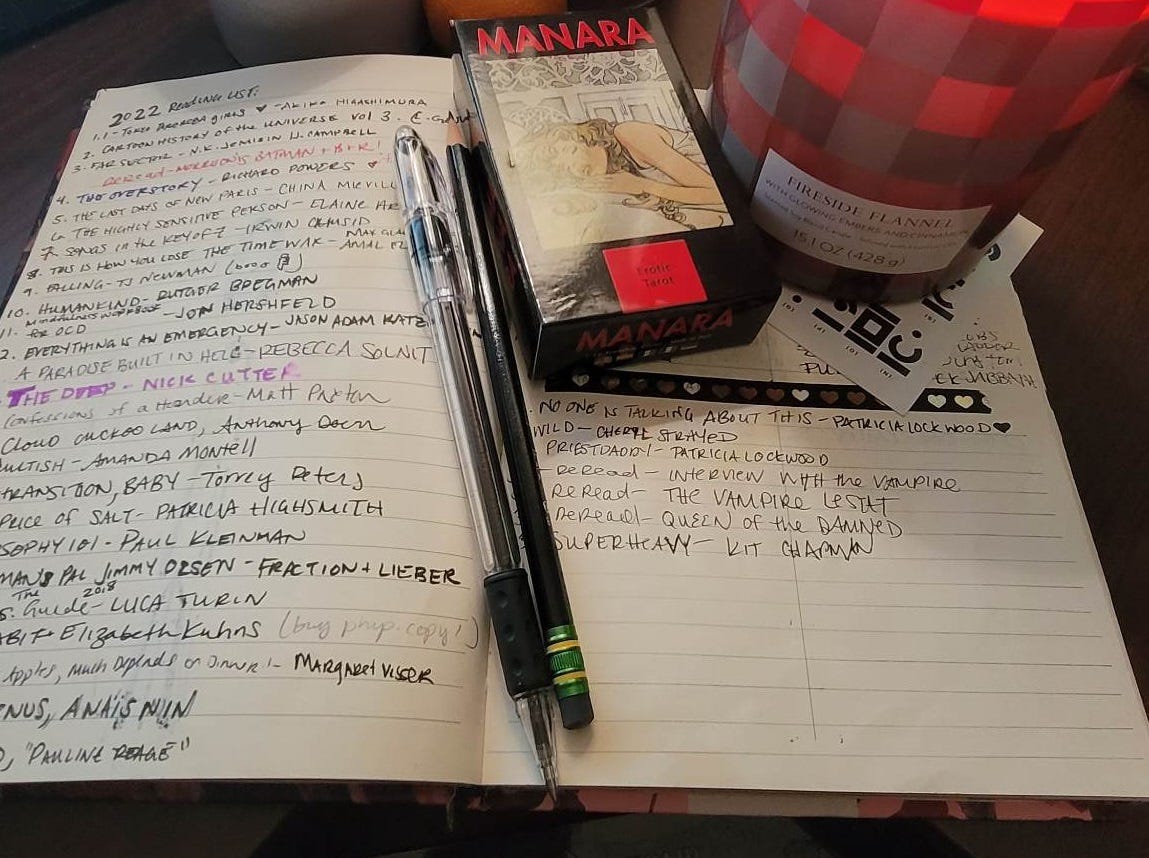 2022 Reading List:
1.1 - Tokyo Tarareba Girls ♥ - Akiko Higashimura
2. CARTOON HISTORY of the UNIVERSE Vol 3.
3. FAR SECTOR - N.K. JEMISIN + J. CAMPBELL
Reread - MORRISON'S BATMAN + B+R!
4. THE OVERSTORY - RICHARD POWERS
5. THE LAST DAYS OF NEW PARIS - CHINA MIEVILL
6. THE HIGHLY SENSITIVE PERSON - ELAINE
7. SONGS in the KEY of Z - IRWIN CHUSID
8. THIS IS HOW YOU LOSE THE TIME WAR - MAX GLA
AMAL EL
9. FALLING - TJ NEWMAN
10. HUMANKIND - RUTGER BREGMAN
11. Mindfulness workbook for OCD - JON HERSHFELD
2. EVERYTHING IS AN EMERGENCY - JASON ADAM KATZ
A PARADISE BUILT IN HELL - REBECCA SOLNIT
THE DEEP - NICK CUTTER
Confessions of a Hoarder - Matt Paxton
CLOUD CUCKOO LAND, Anthony Doerr
ULTISH - AMANDA MONTELL
TRANSITION, BABY - Torrey Peters
PRICE OF SALT - PATRICIA HIGHSMITH
SOPHY 101 - PAUL KLEINMAN
MAN'S PAL JIMMY OLSEN - FRACTION + LIEBER
The Guide 2018 - LUCA TURIN
ABIT + Elizabeth Kuhns (buy phys. copy!)
Apples, Much Depends on Dinner! - MARGARET VISSER
ENUS, ANAÏS NIN
O, "PAULINE REAGE"
MANARA
Erotic
Tarot
MANARA
FIRESIDE FLANNEL
WITH GLOWING EMBERS AND CINNAMON
15.1 OZ (428 g)
NO ONE IS TALKING ABOUT THIS - PATRICIA LOCKWOOD ♥
WILD - CHERYL STRAYED
PRIESTDADDY - PATRICIA LOCKWOOD
- REREAD - INTERVIEW WITH the VAMPIRE
REREAD - THE VAMPIRE LESTAT
REREAD - QUEEN of the DAMNED
SUPERHEAVY - KIT CHAPMAN